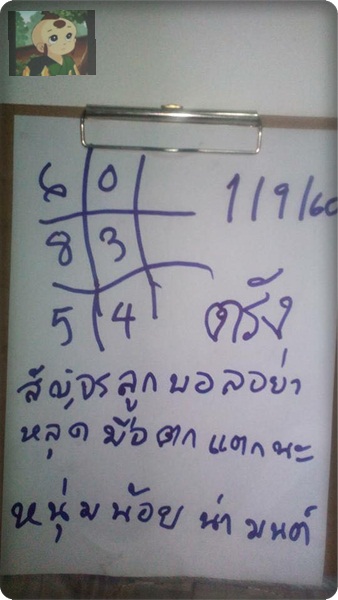 6 0
1/9/60
8 3
5 4
ตรัง
สัญจร ลูกบอลอย่า
หลุด มือ ตก แตก นะ
หนุ่ม น้อย น่า มนต์